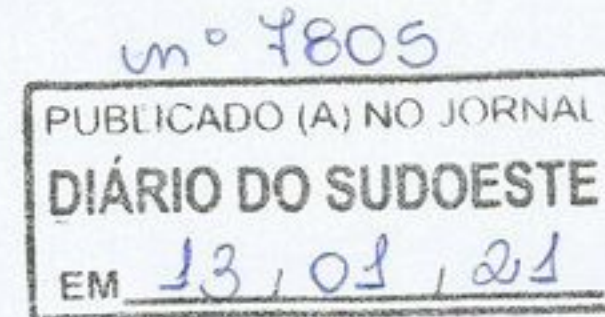 nº 7805
PUBLICADO (A) NO JORNAL
DIÁRIO DO SUDOESTE
EM 13 / 01 / 21